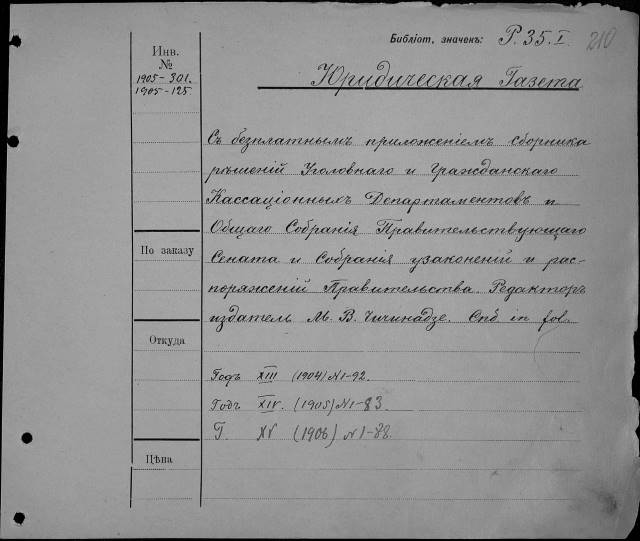 Библіот. значекъ: Р.35.I. 210
Инв.
№
1905-301.
1905-125
Юридическая Газета
Съ безплатнымъ приложеніемъ сборника
рѣшеній Уголовнаго и Гражданскаго
Кассаціонныхъ Департаментовъ и
Общаго Собранія Правительствующаго
Сената и Собранія узаконеній и рас-
поряженій Правительства. Редакторъ
издатель М. В. Чичинадзе. Спб in fol.
По заказу
Откуда
Годъ XIII (1904) N 1-92.
Годъ XIV. (1905) N 1-83
Г. XV (1906) N 1-88.
Цѣна